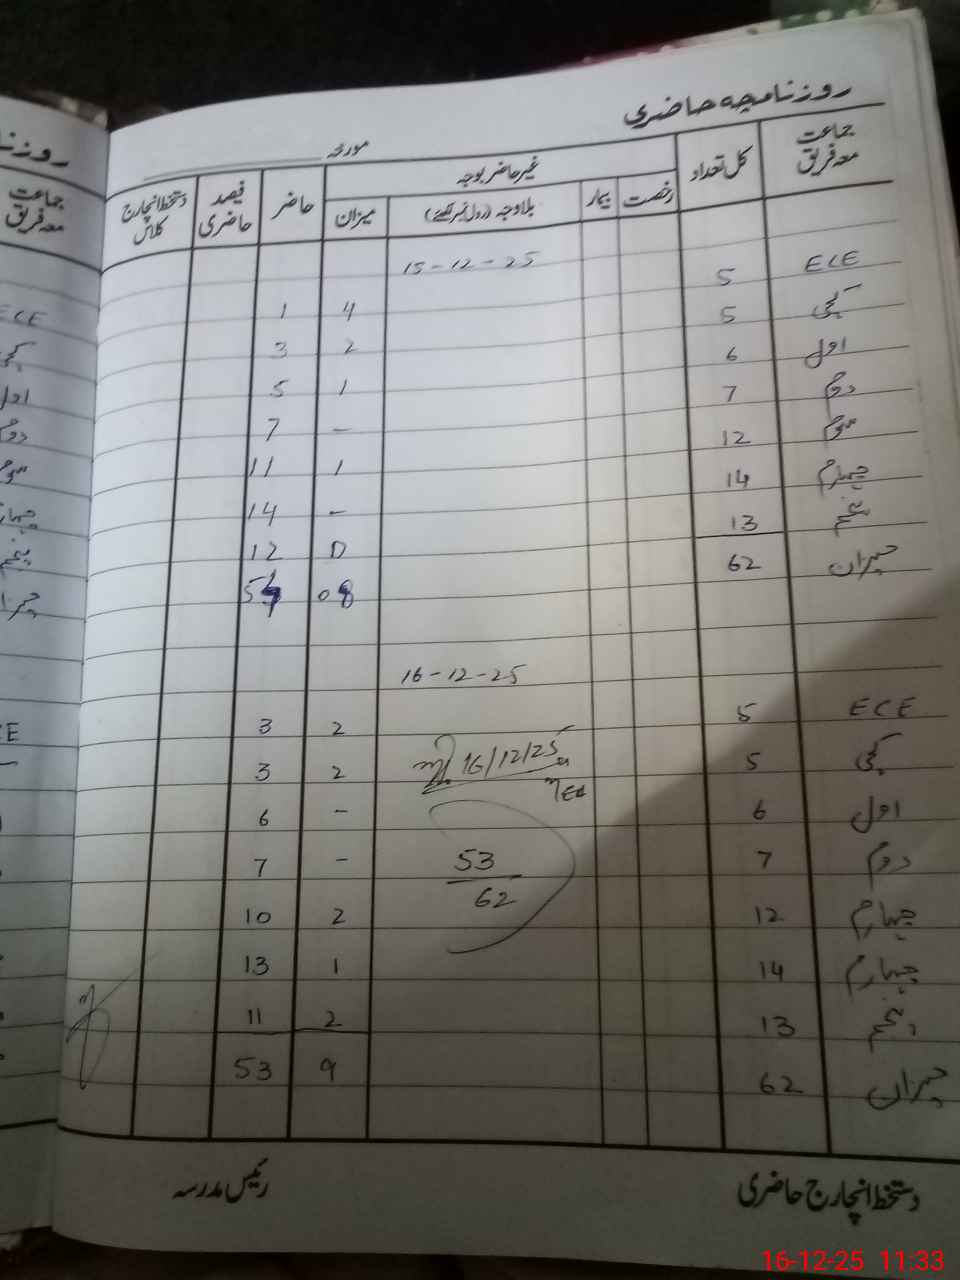 روزنامچہ حاضری
مورخہ
جماعت معہ فریق | کل تعداد | غیر حاضر بوجہ | حاضر | فیصد حاضری | دستخط انچارج کلاس
رخصت | بیمار | بلاوجہ (رول نمبر لکھئے) | میزان
15-12-25
ECE 5 4 1
کچی 5 2 3
اول 6 1 5
دوم 7 - 7
سوم 12 1 11
چہارم 14 - 14
پنجم 13 12
میزان 62 08
16-12-25
ECE 5 2 3
کچی 5 2 3
16/12/25
اول 6 - 6
دوم 7 - 7
53
62
چہارم 12 2 10
چہارم 14 1 13
پنجم 13 2 11
میزان 62 9 53
دستخط انچارج حاضری
رئیس مدرسہ
روزنا
جماعت
معہ فریق
ECE
کچی
اول
دوم
سوم
چہار
پنجم
میزا
16-12-25 11:33